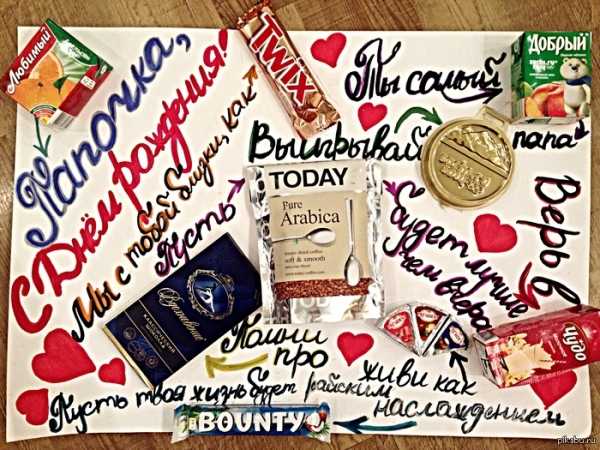 Любимый
Папочка,
С Днём рождения!
Мы с тобой близки, как
TWIX
Ты самый
Добрый
папа
Выигрывай
Верь в
Чудо
Пусть
TODAY
Pure
Arabica
soft & smooth
TODAY
Будет лучше
чем вчера
Вдохновение
Помни
про
живи как
наслаждением
Пусть твоя жизнь будет райским
BOUNTY
pikabu.ru